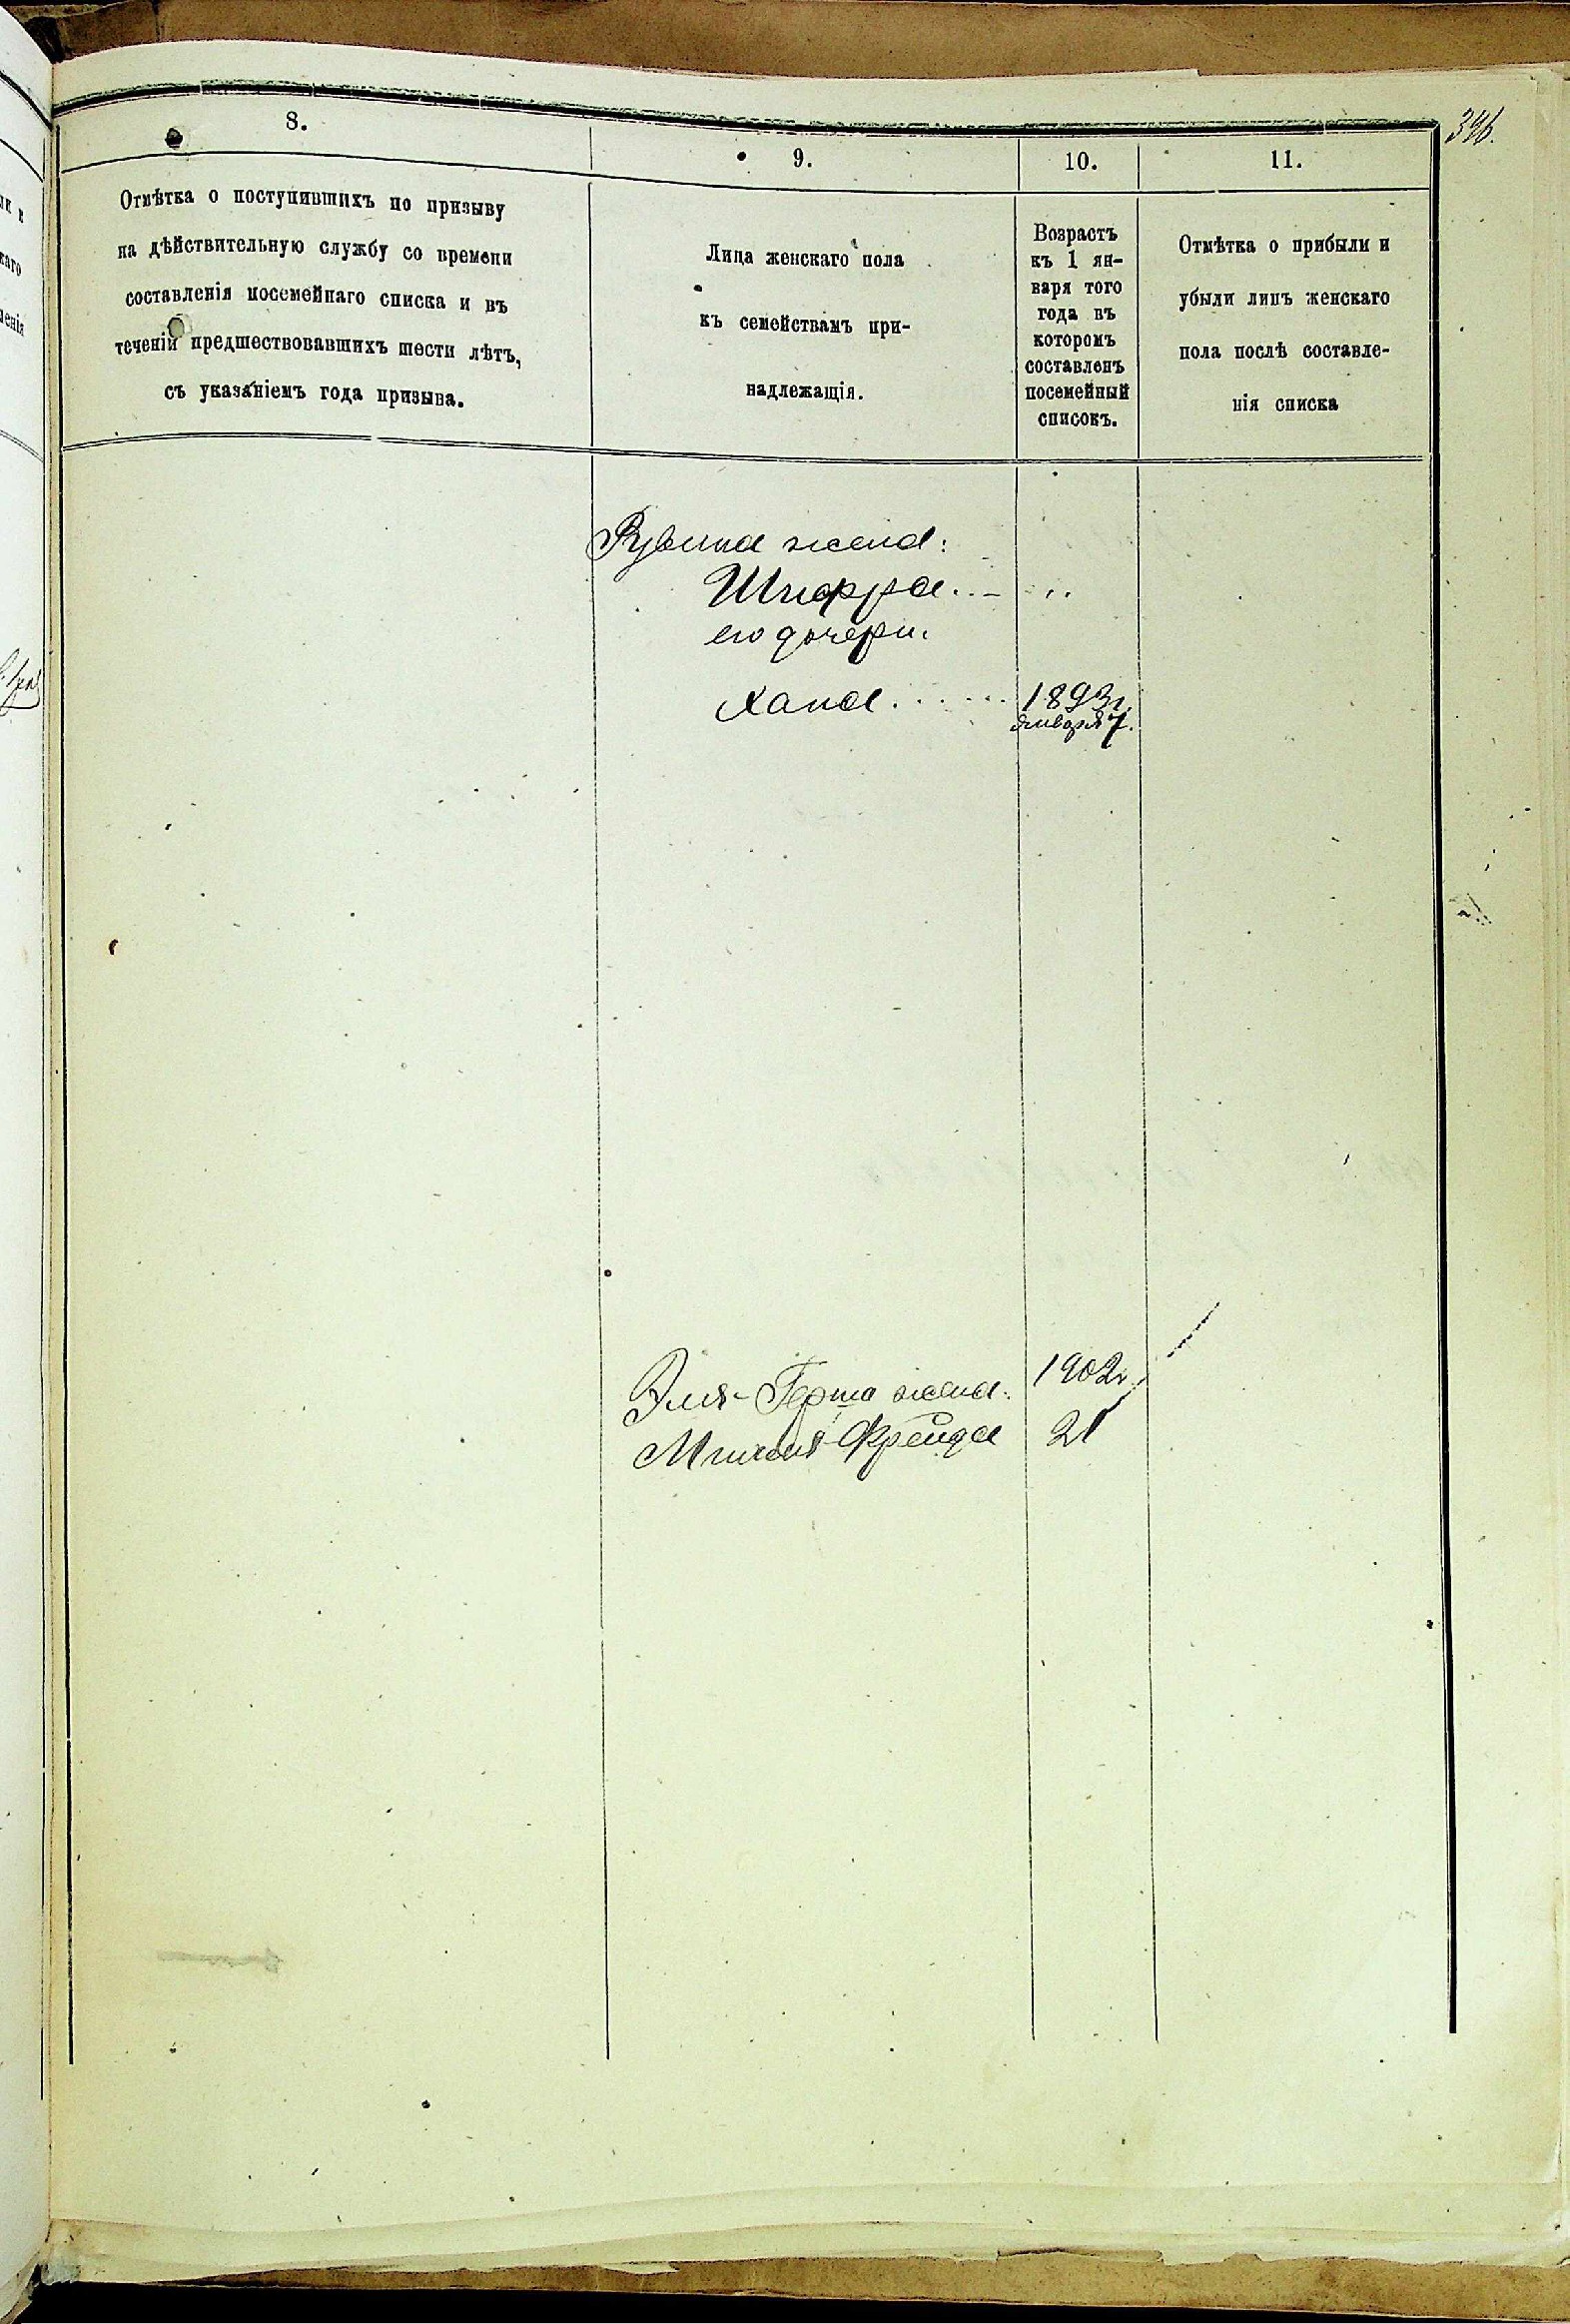 346.
8.
Отмѣтка о поступившихъ по призыву
на дѣйствительную службу со времени
составленія посемейнаго списка и въ
теченіи предшествовавшихъ шести лѣтъ,
съ указаніемъ года призыва.
9.
Лица женскаго пола
къ семействамъ при-
надлежащія.
10.
Возрастъ
къ 1 ян-
варя того
года въ
которомъ
составленъ
посемейный
списокъ.
11.
Отмѣтка о прибыли и
убыли лицъ женскаго
пола послѣ составле-
нія списка
Рувина жена:
Шифра
его дочери.
Хана 1893г.
января 7.
Эля-Герша жена. 1902г.
Фрейда 21